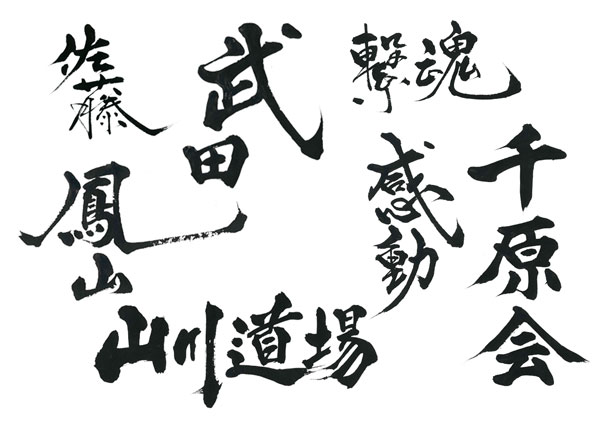 佐藤
武田
撃魂
感動
千原会
鳳山
山川道場